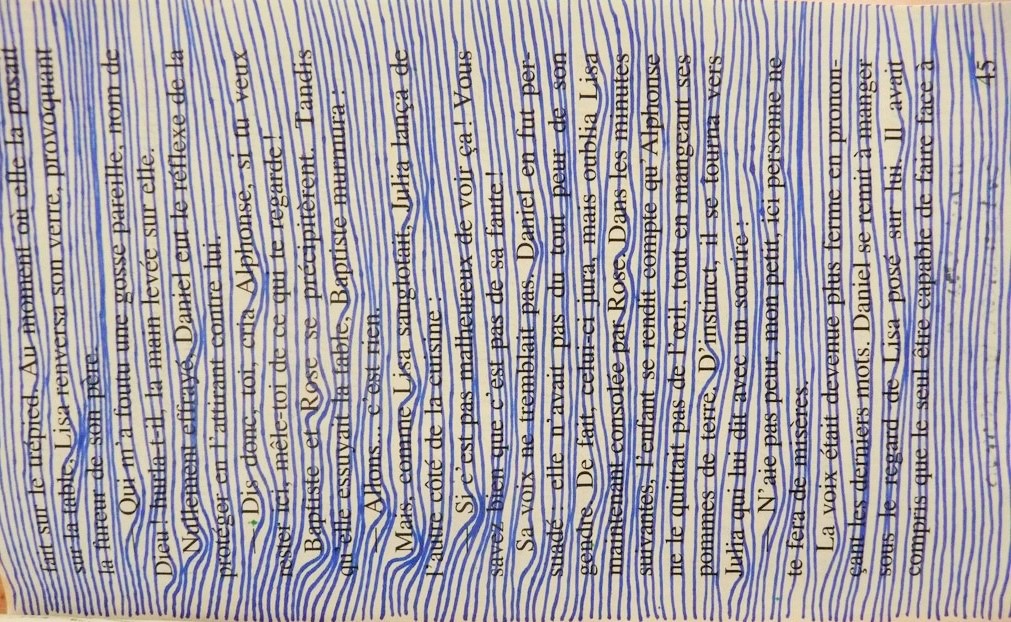 fait sur le trépied. Au moment où elle la posait
sur la table, Lisa renversa son verre, provoquant
la fureur de son père.
— Qui m'a foutu une gosse pareille, nom de
Dieu ! hurla-t-il, la main levée sur elle.
Nullement effrayé, Daniel eut le réflexe de la
protéger en l'attirant contre lui.
— Dis donc, toi, cria Alphonse, si tu veux
rester ici, mêle-toi de ce qui te regarde !
Baptiste et Rose se précipitèrent. Tandis
qu'elle essuyait la table, Baptiste murmura :
— Allons... c'est rien.
Mais, comme Lisa sanglotait, Julia lança de
l'autre côté de la cuisine :
— Si c'est pas malheureux de voir ça ! Vous
savez bien que c'est pas de sa faute !
Sa voix ne tremblait pas. Daniel en fut per-
suadé : elle n'avait pas du tout peur de son
gendre. De fait, celui-ci jura, mais oublia Lisa
maintenant consolée par Rose. Dans les minutes
suivantes, l'enfant se rendit compte qu'Alphonse
ne le quittait pas de l'œil, tout en mangeant ses
pommes de terre. D'instinct, il se tourna vers
Julia qui lui dit avec un sourire :
— N'aie pas peur, mon petit, ici personne ne
te fera de misères.
La voix était devenue plus ferme en pronon-
çant les derniers mots. Daniel se remit à manger
sous le regard de Lisa posé sur lui. Il avait
compris que le seul être capable de faire face à
45